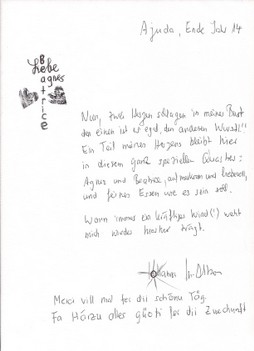 Ajuda, Ende Jahr 14
Liebe
Agnes
Beatrice
Nun, zwei Herzen schlagen in meiner Brust
den einen ist es egal, den anderen Wurst!!
Ein Teil meines Herzens bleibt hier
in diesem ganz speziellen
Agnes und Beatrice, aufmerksam und liebevoll,
und feines Essen wie es sein soll.
Wann immer ein kräftiger Wind(!) weht
mich wieder hierher trägt.
Merci vill mol fer dii schöne Täg
alles Guäti fer dii Zuekunft